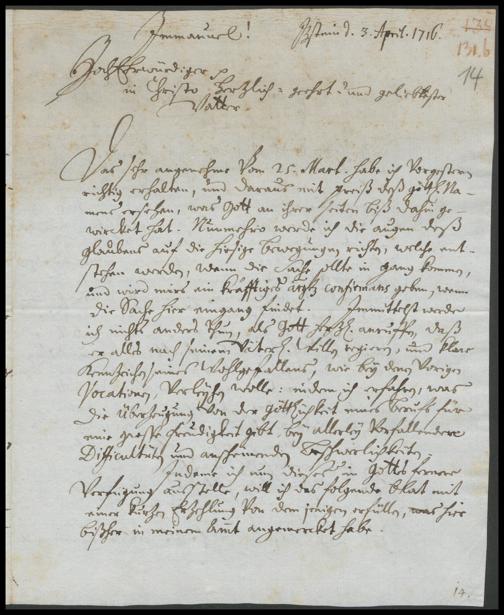 Immanuel! Idstein d. 3. April. 1716.
134
131.b
14
HochEhrwürdiger
in Christo Hertzlich-geehrt- und geliebtester
Vatter
Das sehr angenehme vom 25. Mart. habe ich vorgestern
richtig erhalten, und daraus mit preiß deß göttl. Na-
mens ersehen, was Gott an ihrer seiten biß dahin ge-
wircket hat. Nunmehro werde ich die augen deß
glaubens auf die hiesige bewegungen richten, welche ent-
stehen werden, wann die Sache solte in gang kommen,
und wird mirs ein kräfftiges confirmans geben, wenn
die Sache hier eingang findet. Immittelst werde
ich nichts anders thun, als Gott hertzl. anruffen, daß
er alles nach seinem Willen regieren, und klare
Kennzeichen seines Wohlgefallens, wie bey den vorigen
Vocationen, verleyhen wolle: indem ich erfahre, was
die überzeugung von der göttlichkeit eines berufs für
eine grosse freudigkeit gibt bey allerley vorfallenden
Difficultäten und anscheinenden beschwerlichkeiten.
Indeme ich nun dieses in Gottes fernere
verfügung ausstelle, will ich das folgende blat mit
einer kurtzen Erzehlung von dem jenigen erfüllen, was hier
bißher in meinem Amt angemercket habe.
14.